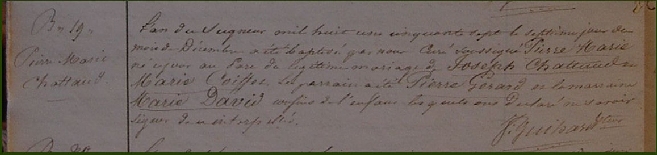 Bme 19
Pierre Marie
Chattaud
L'an du Seigneur mil huit cent cinquante sept le septième jour du
mois de Décembre a été baptisé par nous Curé soussigné Pierre Marie
né ce jour au Parc de légitime mariage de Joseph Chattaud et
Marie Coiffet. Le parrain a été Pierre Gérard et la marraine
Marie David cousins de l'enfant lesquels ont déclaré ne savoir
signer de ce interpellés.
J. Guihard